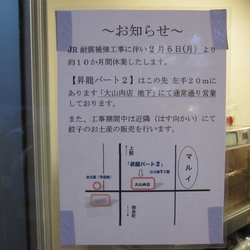 ～お知らせ～
JR 耐震補強工事に伴い２月６日(月) より
約１０か月間休業したします。
【昇龍パート２】はこの先 左手２０ｍに
あります「大山肉店 地下」にて通常通り営業
しております。
また、工事期間中は近隣（はす向かい）にて
餃子のお土産の販売を行います。
上野
「昇龍パート２」
マルイ
大山肉店
御徒町